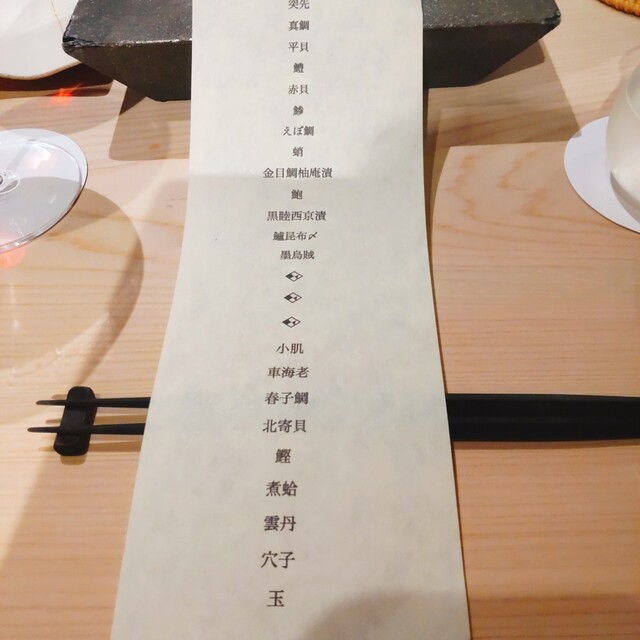 突先
真鯛
平貝
鱧
赤貝
鯵
えぼ鯛
蛸
金目鯛柚庵漬
鮑
黒睦西京漬
鱸昆布〆
墨烏賊
小肌
車海老
春子鯛
北寄貝
鰹
煮蛤
雲丹
穴子
玉